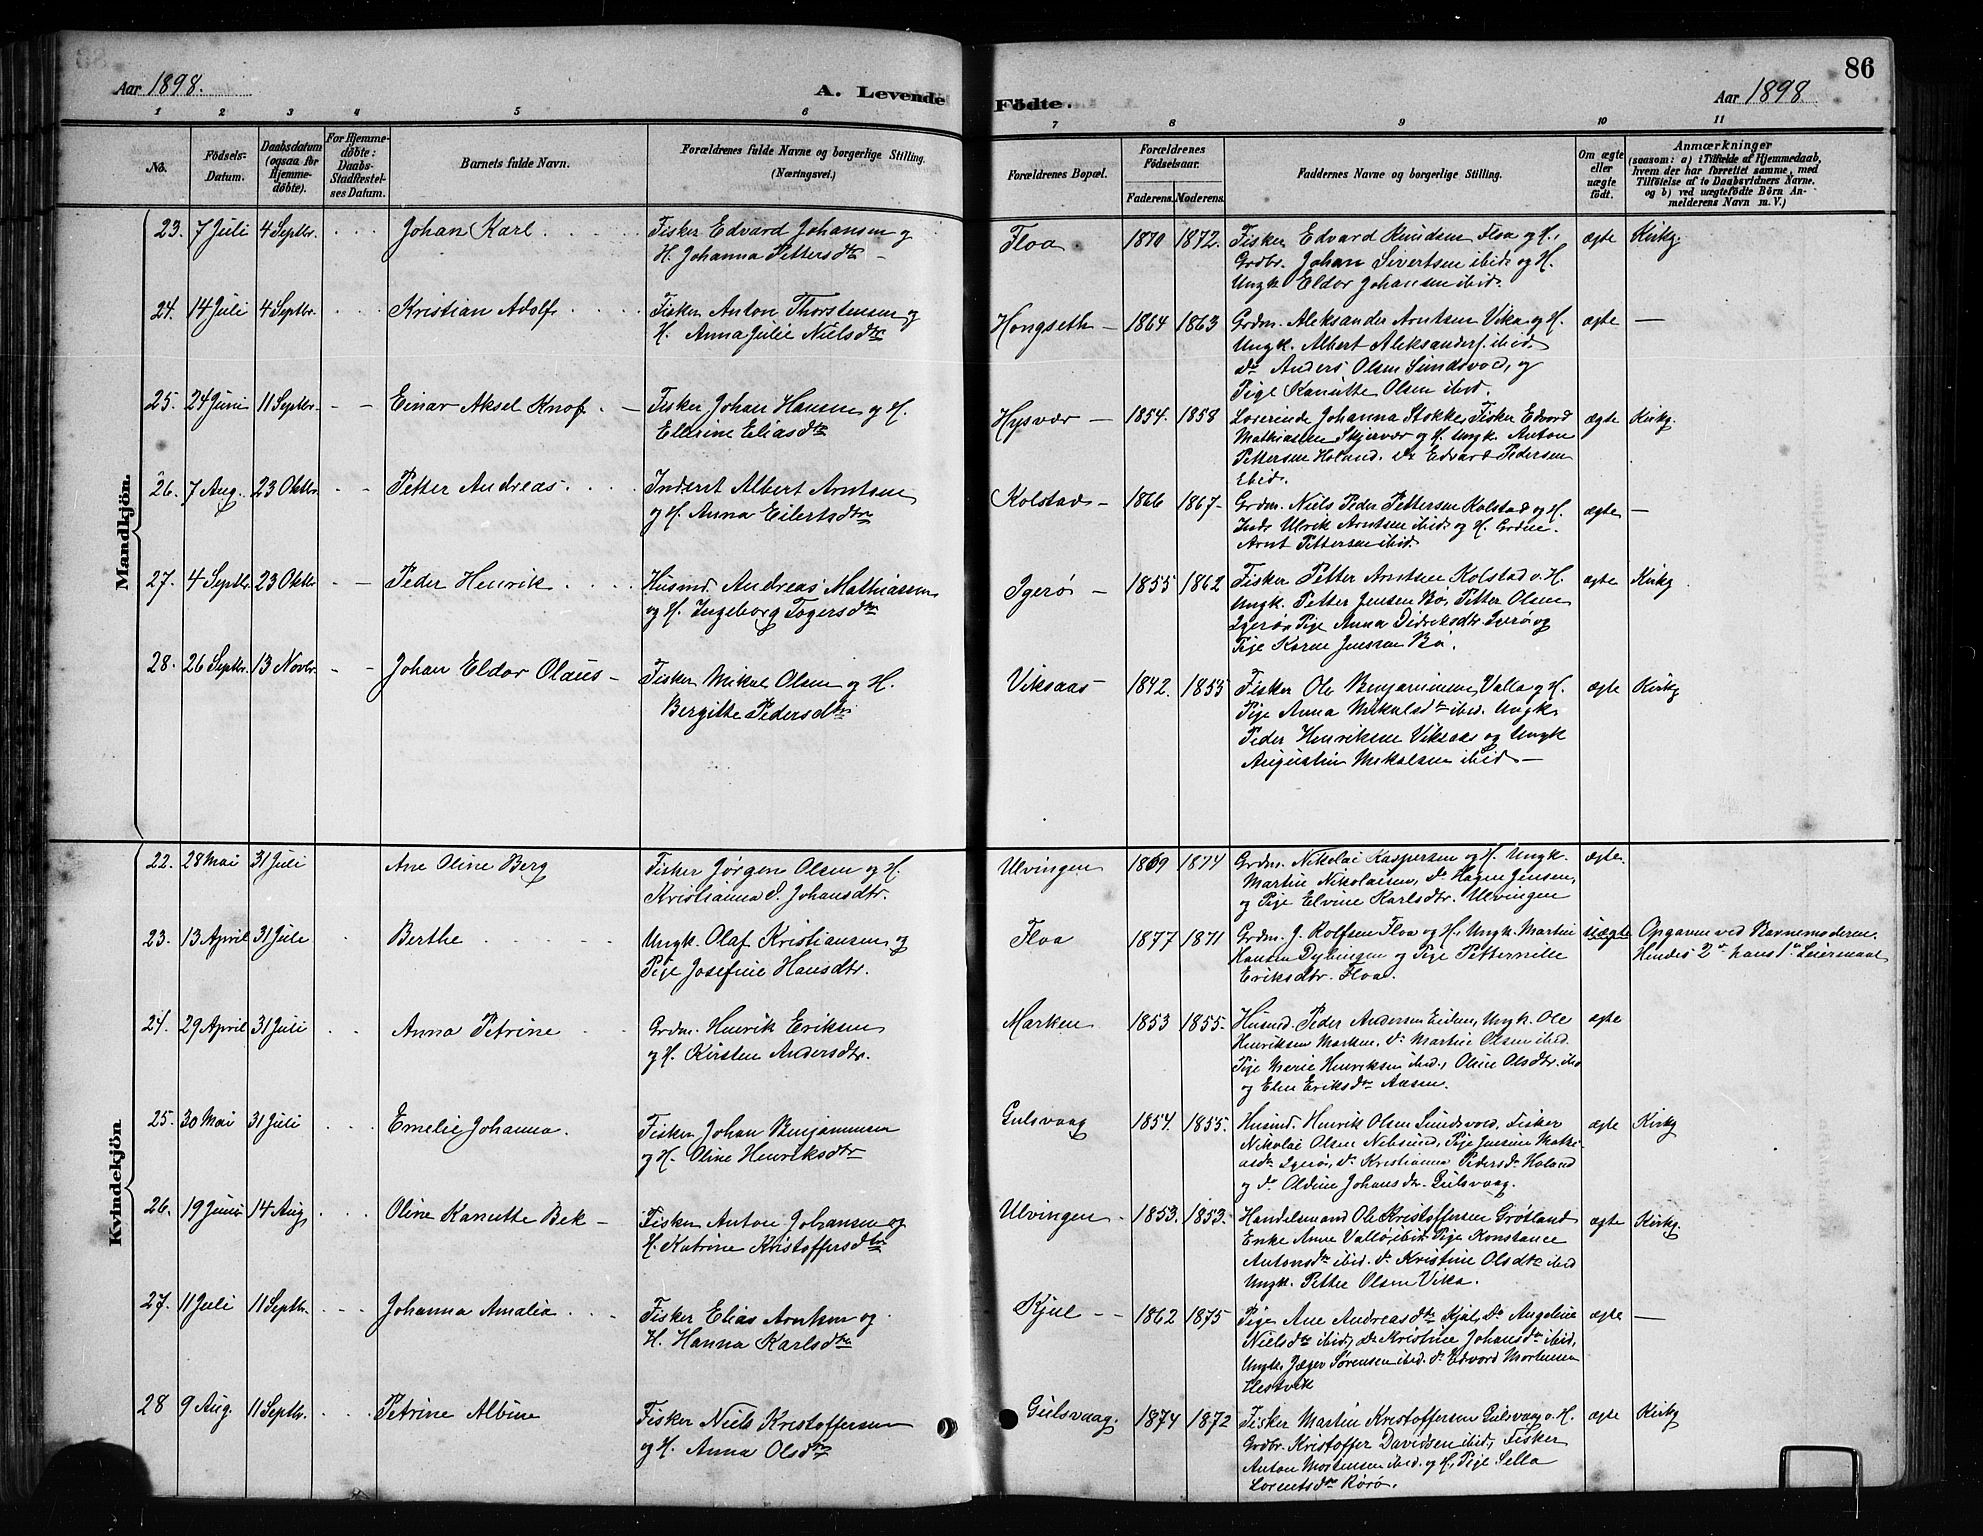 86
Aar 1898.
A. Levende Fødte.
Aar 1898
1 2 3 4 5 6 7 8 9 10 11
No.
Fødsels-
Datum.
Daabsdatum
(ogsaa for
Hjemme-
døbte).
For Hjemme-
døbte:
Daabs-
Stadfæstel-
ses Datum.
Barnets fulde Navn.
Forældrenes fulde Navne og borgerlige Stilling.
(Næringsvei.)
Forældrenes Bopæl.
Forældrenes
Fødselsaar.
Faderens. Moderens.
Faddernes Navne og borgerlige Stilling.
Om ægte
eller
uægte
født.
Anmærkninger
(saasom: a) i Tilfælde af Hjemmedaab,
hvem der har forrettet samme, med
Tilføielse af to Daabsvidners Navne,
og b) ved uægtefødte Børn An-
melderens Navn m. V.)
Mandkjön.
23. 7 Juli 4 Septbr. Johan Karl
Fisker Edvard Johansen og
H. Johanna Pettersdtr
Floa 1870 1872.
Fisker Edvard Knudsen Floa og H.,
Grdbr. Johan Sivertsen ibid. og H.
Ungk. Eldor Johansen ibid.
ægte Kirkg.
24. 14 Juli 4 Septbr. Kristian Adolf
Fisker Anton Thorstensen og
H. Anna Julie Nielsdtr
Hongseth 1864 1863
Grdm. Aleksander Arntsen Vika og H.
Ungk. Albert Aleksanders. ibid.
do Anders Olsen Sundsvold, og
Pige Kanutte Olsen ibid.
ægte —
25. 24 Juni 11 Septbr. Einar Aksel Knof
Fisker Johan Hansen og H.
Ellerine Eliasdtr
Hysvær 1854. 1858
Lærerinde Johanna Stokke, Fisker Edvard
Mathiassen Skjervær og H. Ungk. Anton
Pettersen Holand. do Edvard Pedersen
ibid.
ægte Kirkg.
26. 7 Aug. 23 Oktbr. Petter Andreas
Inderst Albert Arntsen
og H. Anna Eilertsdtr
Kolstad 1866 1867
Grdm. Niels Peder Pettersen Kolstad og H.
Indr. Ulrik Arntsen ibid. og H. Grdm.
Arnt Pettersen ibid.
ægte —
27. 4 Septbr. 23 Oktbr. Peder Henrik
Husmd. Andreas Mathiassen
og H. Ingeborg Togersdtr
Igerø 1855 1862
Fisker Petter Arntsen Kolstad o. H.
Ungk. Petter Jensen Bø, Petter Olsen
Igerø, Pige Anna Didriksdtr. Igerø og
Pige Karen Jensen Bø.
ægte Kirkg
28. 26 Septbr. 13 Novbr. Johan Eldor Olaus
Fisker Mikal Olsen og H.
Bergitte Pedersdtr
Viksaas 1842. 1855
Fisker Ole Benjaminsen Valla og H.
Pige Anna Mikalsdtr ibid. Ungk.
Peder Henriksen Viksaas og Ungk
Augustin Mikalsen ibid
ægte Kirkg
Kvindekjön
22. 28 Mai 31 Juli Ane Oline Berg
Fisker Jørgen Olsen og H.
Kristianna S. Johansdtr.
Ulvingen 1869 1874
Grdm. Nikolai Kaspersen og H. Ungk.
Martin Nikolaisen, do Hagen Jensen,
og Pige Elvine Karlsdtr. Ulvingen
ægte.
23. 13 April 31 Juli Berthe
Ungk. Olaf Kristiansen og
Pige Josefine Hansdtr.
Floa 1877 1871
Grdm. J. Rolfsen Floa og H. Ungk. Martin
Hansen Dybingen og Pige Petternille
Eriksdtr. Floa.
uægte Opgaven ved Barnemoderen.
Hendes 2det hans 1ste Leiermaal
24. 29 April 31 Juli Anna Petrine
Grdm. Henrik Eriksen
og H. Kirsten Andersdtr.
Marken 1853 1855.
Husmd. Peder Andersen Ejden, Ungk. Ole
Henriksen Marken, do Martin Olsen ibid.
Pige Merie Henriksen ibid., Oline Olsdtr. ibid
og Elen Eriksdtr Aasen.
ægte
25. 30 Mai 31 Juli Emelie Johanna.
Fisker Johan Benjaminsen
og H. Oline Henriksdtr
Gulsvaag 1854. 1855.
Husmd. Henrik Olsen Sundsvold, Fisker
Nikolai Olsen Nebsund, Pige Jensine Mathi-
asdtr Igerø, do Kristianna Pedersdtr Holand
og do Oldine Johansdtr. Gulsvaag.
ægte Kirkg
26. 19 Juni 14 Aug Oline Kanutte Bek
Fisker Anton Johansen og
H. Katrine Kristoffersdtr
Ulvingen 1853. 1853.
Handelsmand Ole Kristoffersen Grøtland
Enke Anne Valla ibid. Pige Konstance
Antonsdtr ibid. do Kristine Olsdtr ibid
Ungk. Petter Olsen Vika.
ægte Kirkg.
27. 11 Juli 11 Septbr. Johanna Amalia
Fisker Elias Arntsen og
H. Hanna Karlsdtr
Kjul 1862 1875
Pige Ane Andreasdtr Kjul, do Angeline
Nielsdtr ibid, do Kristine Johansdtr ibid,
Ungk. Jæger Sørensen ibid. do Edvard Mortensen
Hestvik
ægte —
28 9 Aug. 11 Septbr. Petrine Albine
Fisker Niels Kristoffersen
og H. Anna Olsdtr
Gulsvaag. 1874 1872
Fisker Martin Kristoffersen Gulsvaag o. H.
Grdbr. Kristoffer Davidsen ibid, Fisker
Anton Mortensen ibid. og H., Pige Sella
Lorentsdtr Rørø.
ægte Kirkg